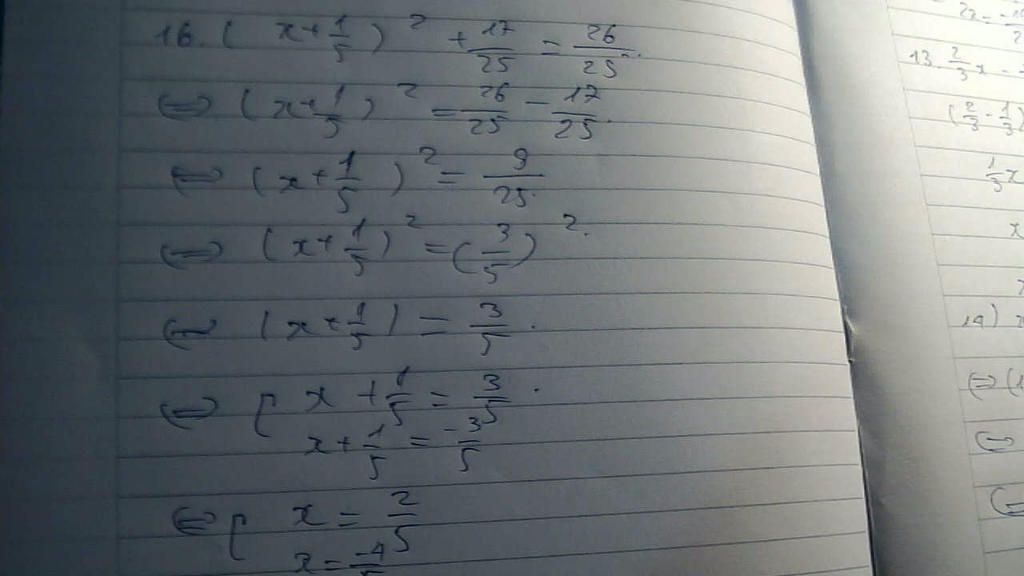 16. (x+1/5)² + 17/25 = 26/25.
⇔ (x+1/5)² = 26/25 - 17/25.
⇔ (x+1/5)² = 9/25.
⇔ (x+1/5)² = (3/5)².
⇔ (x+1/5) = 3/5.
⇔ [ x + 1/5 = 3/5.
x + 1/5 = -3/5
⇔ [ x = 2/5
x = -4/5
13. 2/3x -
(2/3 - 1/3)
x
14)
⇔ (1
⇔